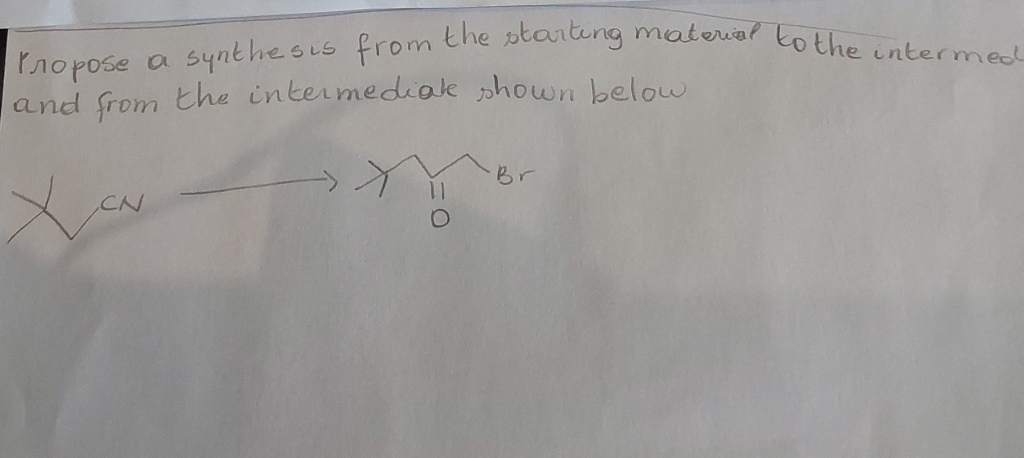 Propose a synthesis from the starting material to the intermed
and from the intermediate shown below
CN
Br
O